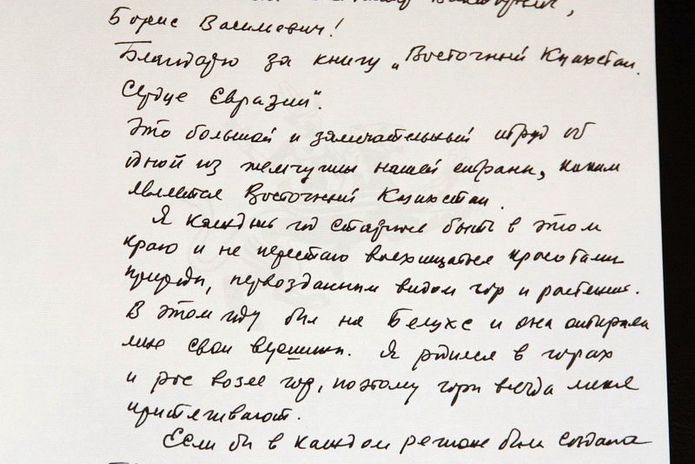 Борис Васильевич!
Благодарю за книгу „Восточный Казахстан.
Сердце Евразии".
Это большой и замечательный труд об
одной из жемчужин нашей страны, каким
является Восточный Казахстан.
Я каждый год стараюсь быть в этом
краю и не перестаю восхищаться красотами
природы, первозданным видом гор и растений.
В этом году был на Белухе и она открыла
мне свои вершины. Я родился в горах
и рос возле гор, поэтому горы всегда меня
притягивают.
Если бы в каждом регионе была создана